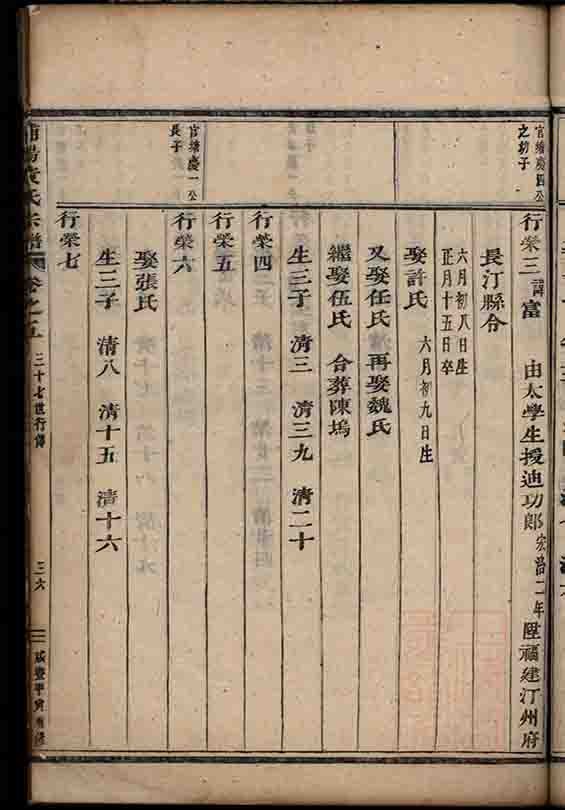 官塘慶四公
之幼子
行榮三 諱富 由太學生授迪功郎宏治二年陞福建汀州府
長汀縣令
六月初八日生
正月十五日卒
娶許氏 六月初九日生
又娶任氏 再娶魏氏
繼娶伍氏 合葬陳塢
生三子 清三 清三九 清二十
行榮四
行榮五
官塘慶一公
長子
行榮六
娶張氏
生三子 清八 清十五 清十六
行榮七
氏宗譜 卷之五 三十七世行傳 三六 咸豐